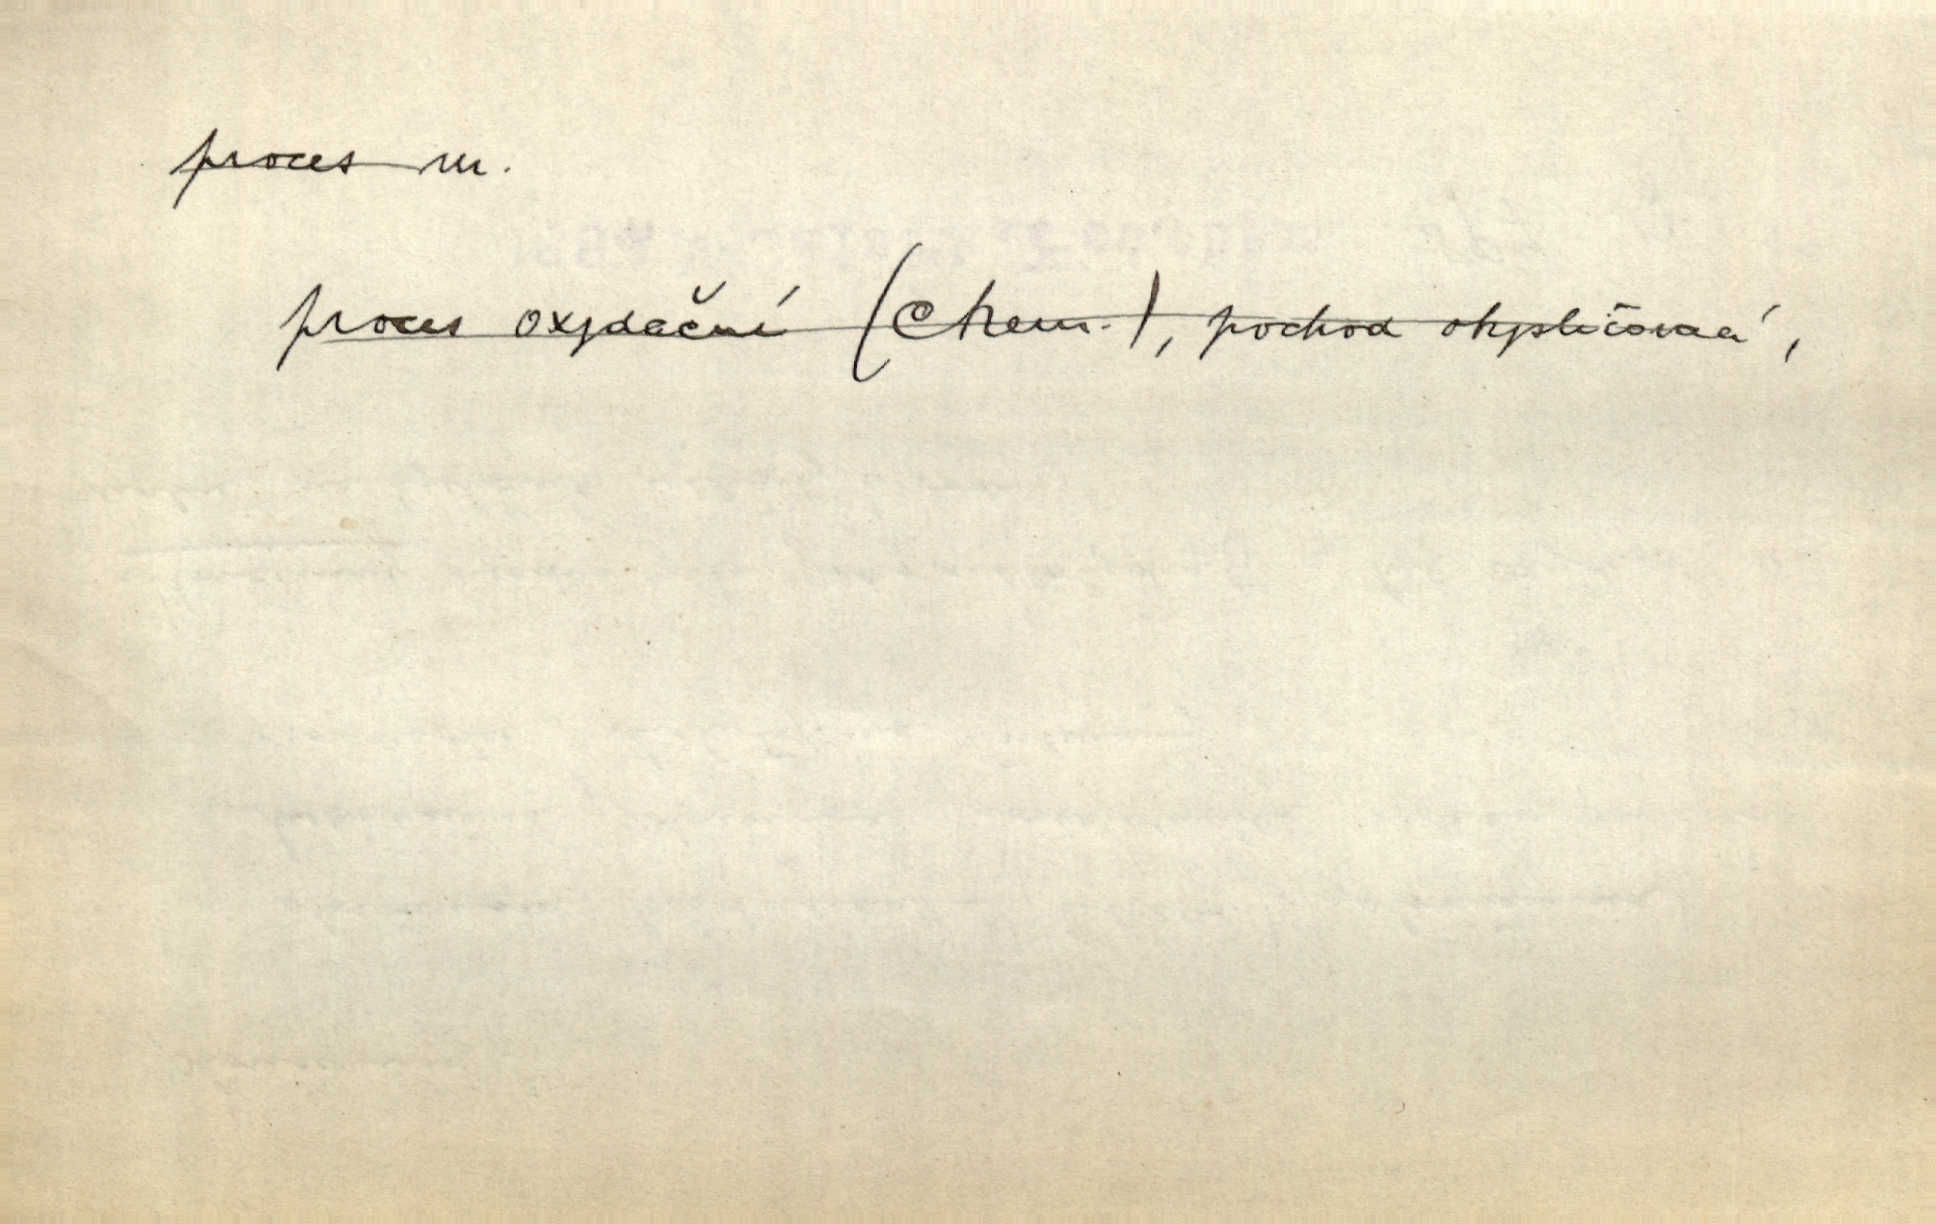 proces m.
proces oxydační (Chem.), pochod okysličovací,